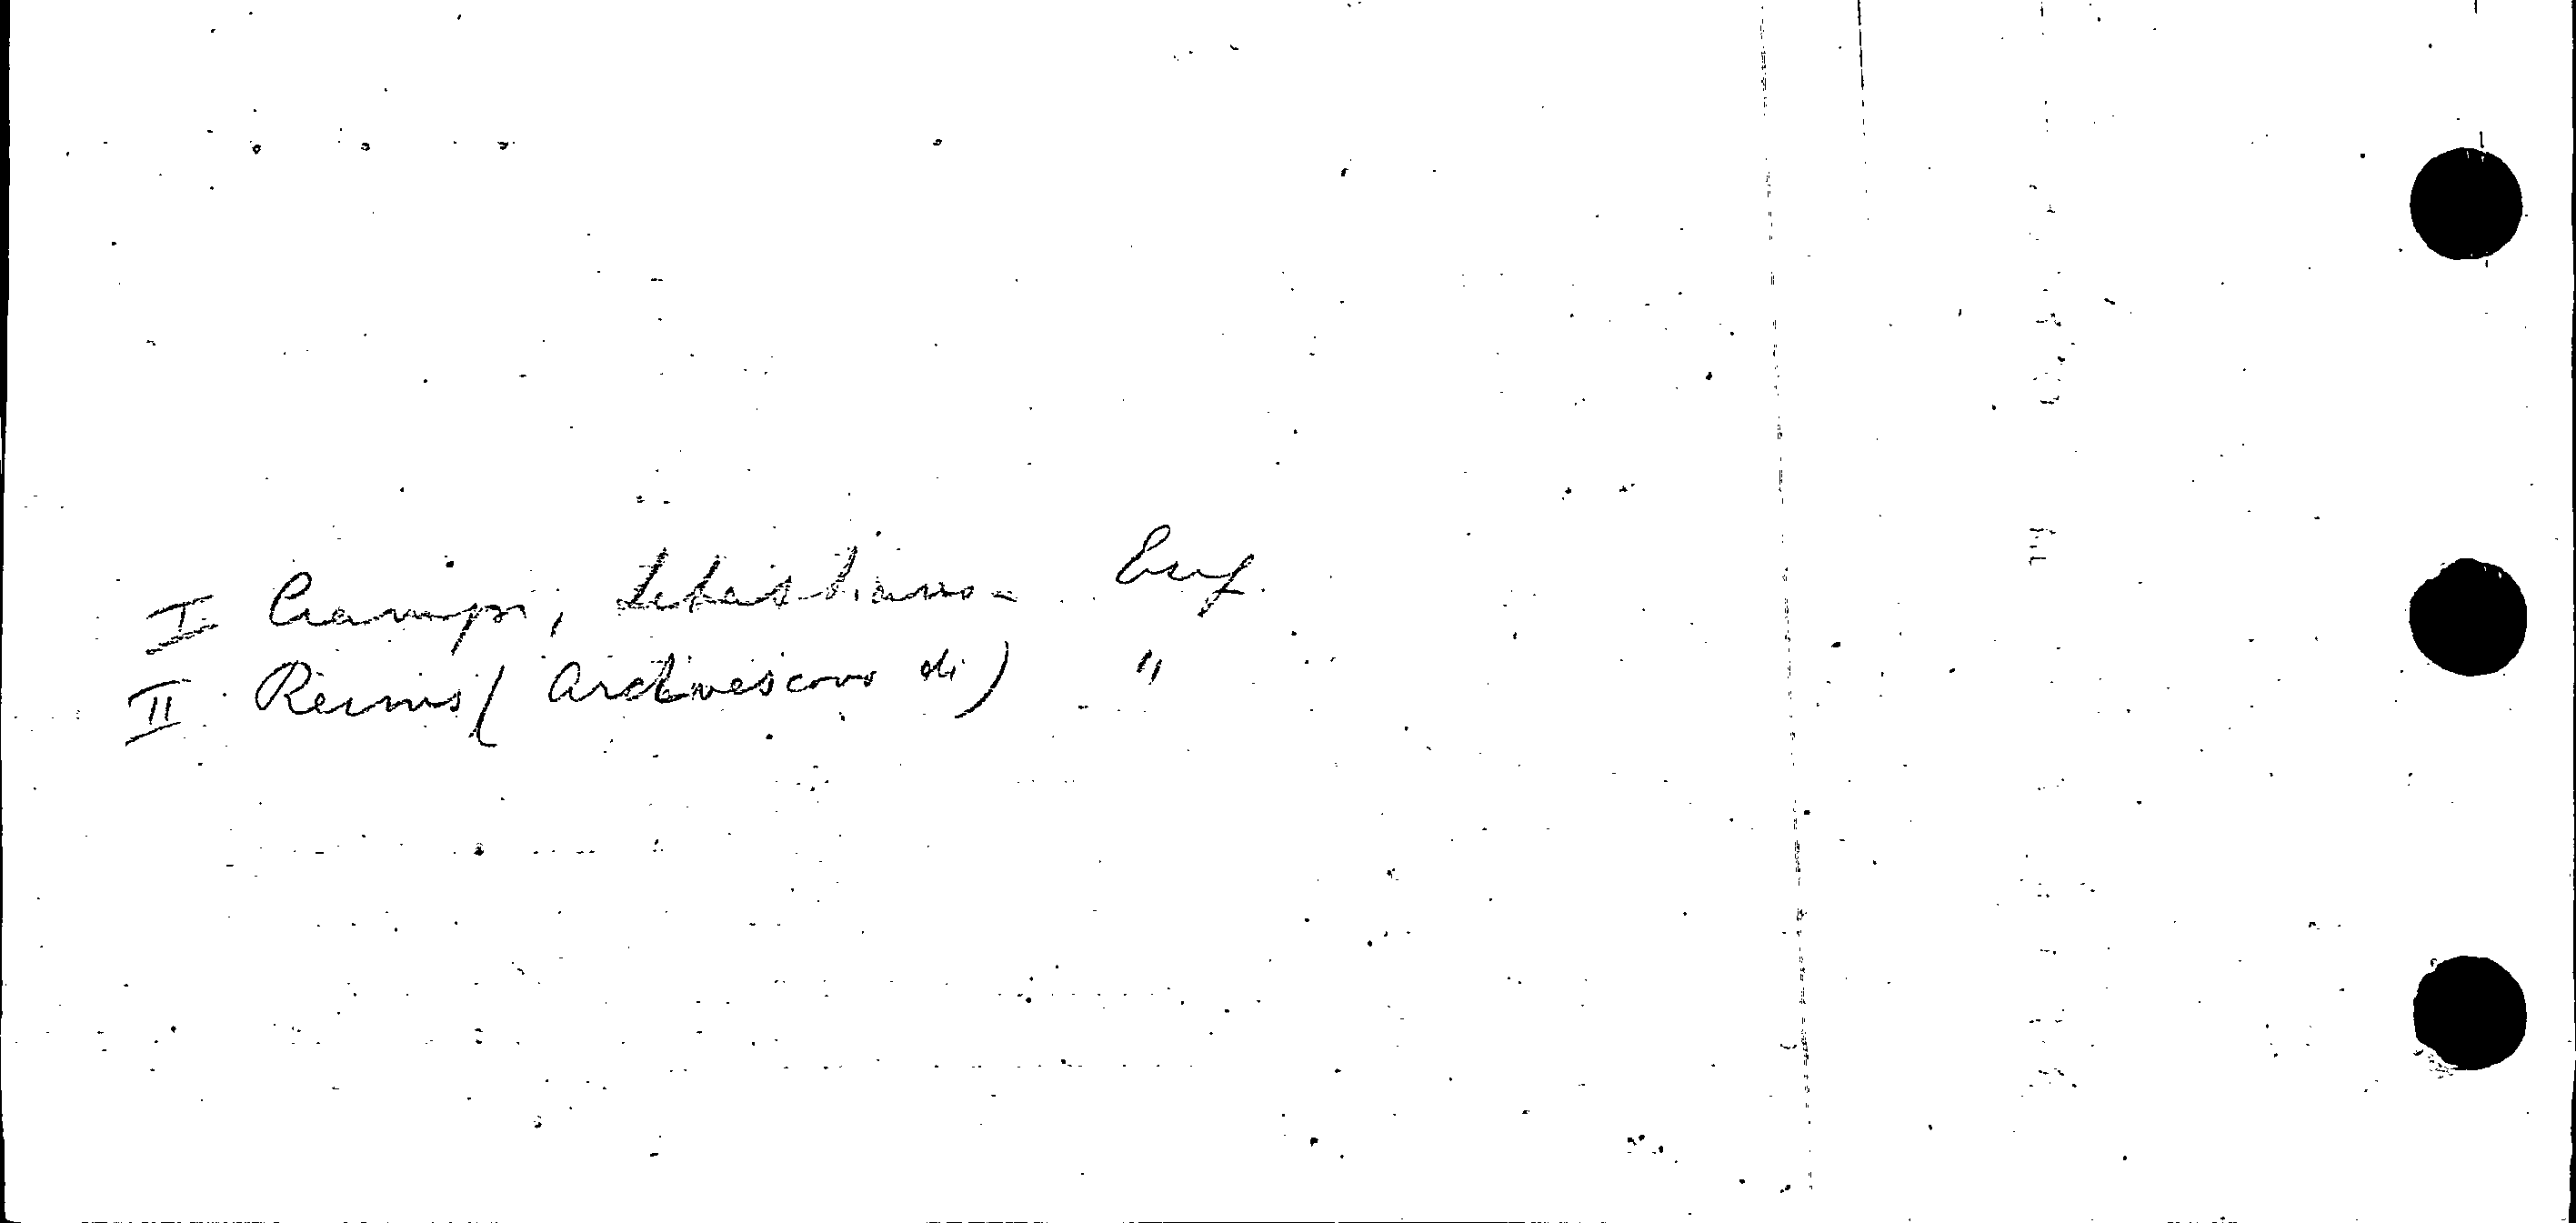 I Ciampi, Sebastiano - Enf.
II Reims (Arcivescovo di) "